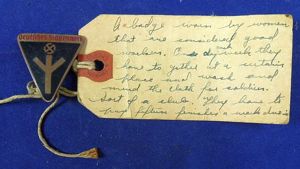 Deutsches Frauenwerk
A badge worn by women
that are considered good
workers. One day a week they
have to gather at a certain
place and wash and
mend the cloth for soldiers.
Sort of a club. They have to
pay fifteen pfennigs a week dues.